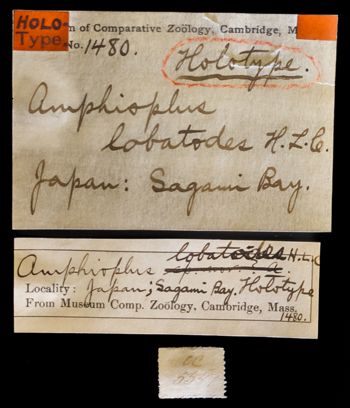 HOLO-
Type.
m of Comparative Zoölogy, Cambridge, M
No. 1480.
Holotype.
Amphioplus
lobatodes H.L.C.
Japan: Sagami Bay.
lobatodes H.L.C.
Amphioplus
Locality: Japan; Sagami Bay. Holotype
From Museum Comp. Zoölogy, Cambridge, Mass.
1480.
OC